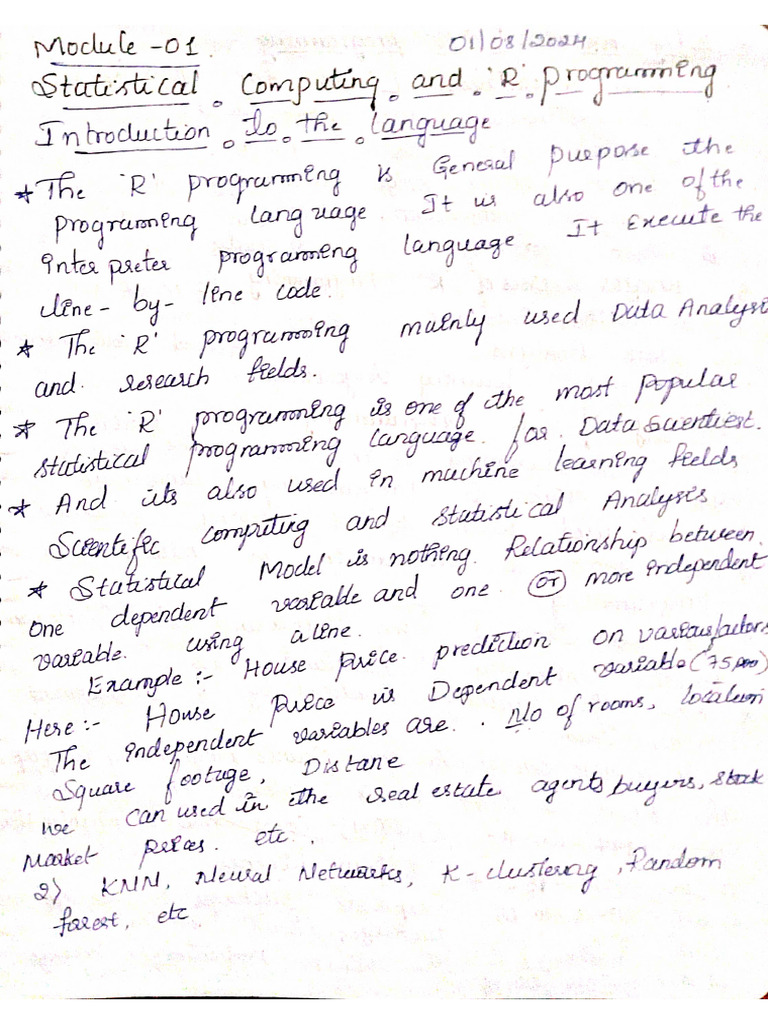 Module -01. 01/08/2024
Statistical Computing and 'R' programming
Introduction to the language
* The 'R' programming is General purpose the
programming language It is also one of the
interpreter programming language It Execute the
line - by - line code.
* The 'R' programming mainly used Data Analysis
and research fields.
* The 'R' programming is one of the most popular
statistical programming language for Data Scientist.
* And its also used in machine learning fields
Scientific computing and statistical Analysis
* Statistical Model is nothing. Relationship between
one dependent variable and one (or) more independent
variable. using a line.
Example :- House price. prediction on various factors
Here :- House price is Dependent variable (75,000)
The independent variables are. N/o of rooms, location
Square footage, Distane
we can used in the real estate agents buyers, stock
Market prices. etc.
2) KNN, Neural Networks, K-clustering, Random
forest, etc